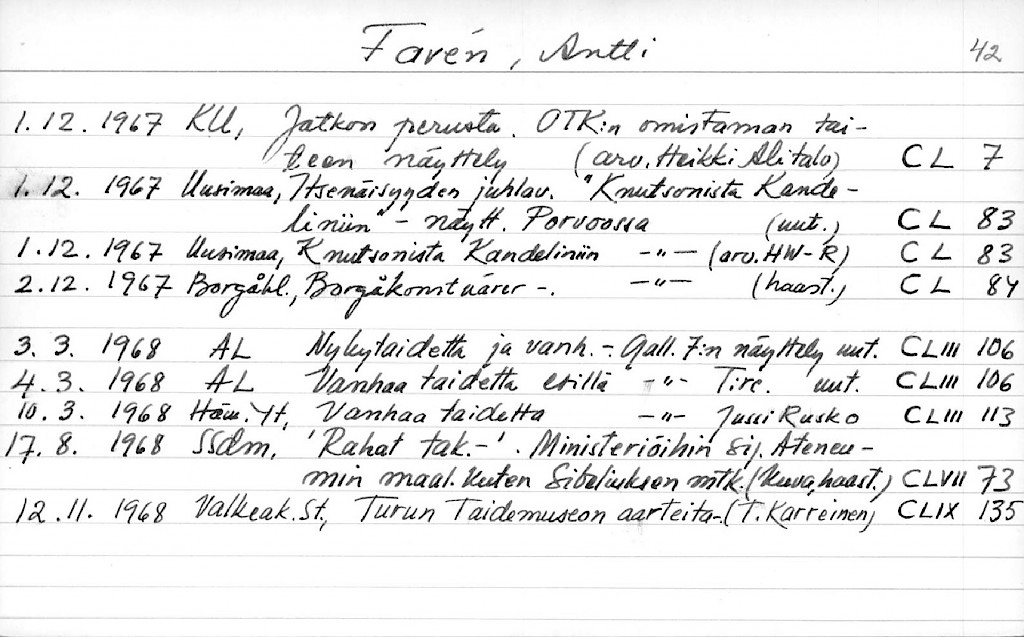 Favén, Antti 42
1.12.1967 KU, Jatkon perusta. OTK:n omistaman tai-
teen näyttely (arv. Heikki Alitalo) CL 7
1.12.1967 Uusimaa, Itsenäisyyden juhlav. "Knutsonista Kande-
liniin" - näytt. Porvoossa (uut.) CL 83
1.12.1967 Uusimaa, Knutsonista Kandeliniin -"- (arv. HW-R) CL 83
2.12.1967 Borgåbl., Borgåkonstnärer -. -"- (haast.) CL 84
3.3. 1968 AL Nykytaidetta ja vanh. - Gall. 7:n näyttely uut. CLIII 106
4.3. 1968 AL Vanhaa taidetta esillä -"- T:re. uut. CLIII 106
10.3. 1968 Häm. Yt, Vanhaa taidetta -"- Jussi Rusko CLIII 113
17.8. 1968 SSdm, 'Rahat tak.-'. Ministeriöihin sij. Ateneu-
min maal. kuten Sibeliuksen mtk. (kuva, haast.) CLVII 73
12.11. 1968 Valkeak. St., Turun Taidemuseon aarteita-. (T. Karreinen) CLIX 135